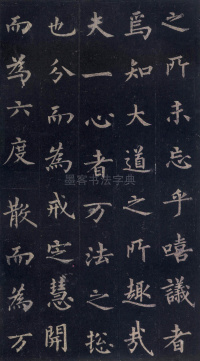 之所未忘乎嘻議者
焉知大道之所趣哉
夫一心者万法之捴
也分而為戒定慧開
而為六度散而為万
墨客书法字典